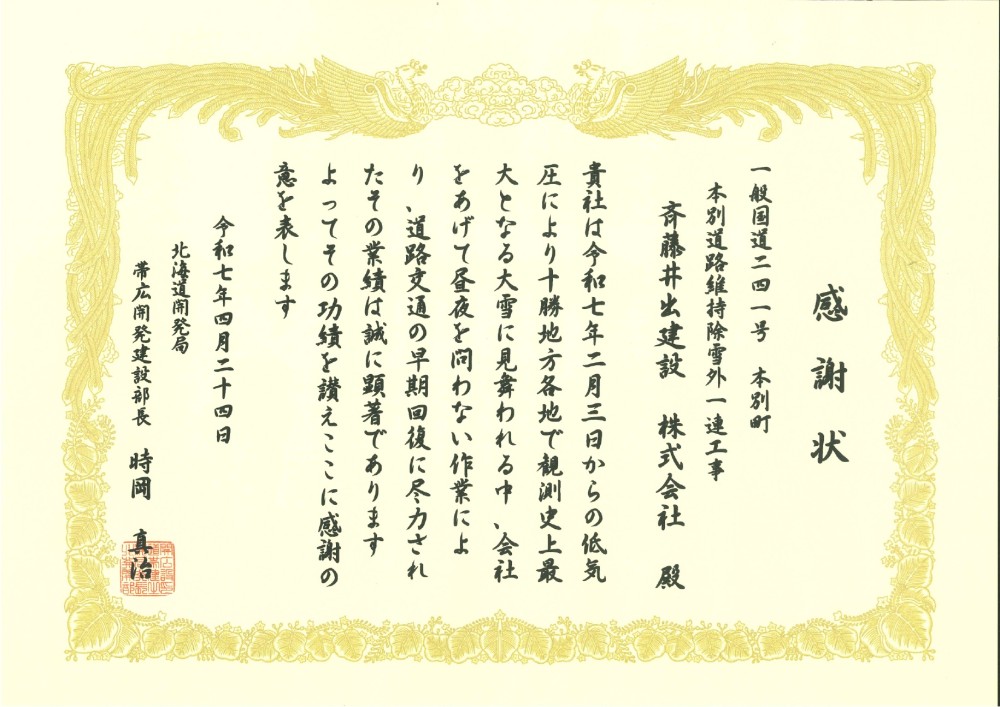 感謝状
一般国道二四一号 本別町
本別道路維持除雪外一連工事
斉藤井出建設 株式会社 殿
貴社は令和七年二月三日からの低気
圧により十勝地方各地で観測史上最
大となる大雪に見舞われる中、会社
をあげて昼夜を問わない作業によ
り、道路交通の早期回復に尽力され
たその業績は誠に顕著であります
よってその功績を讃えここに感謝の
意を表します
令和七年四月二十四日
北海道開発局
帯広開発建設部長 時岡 真治